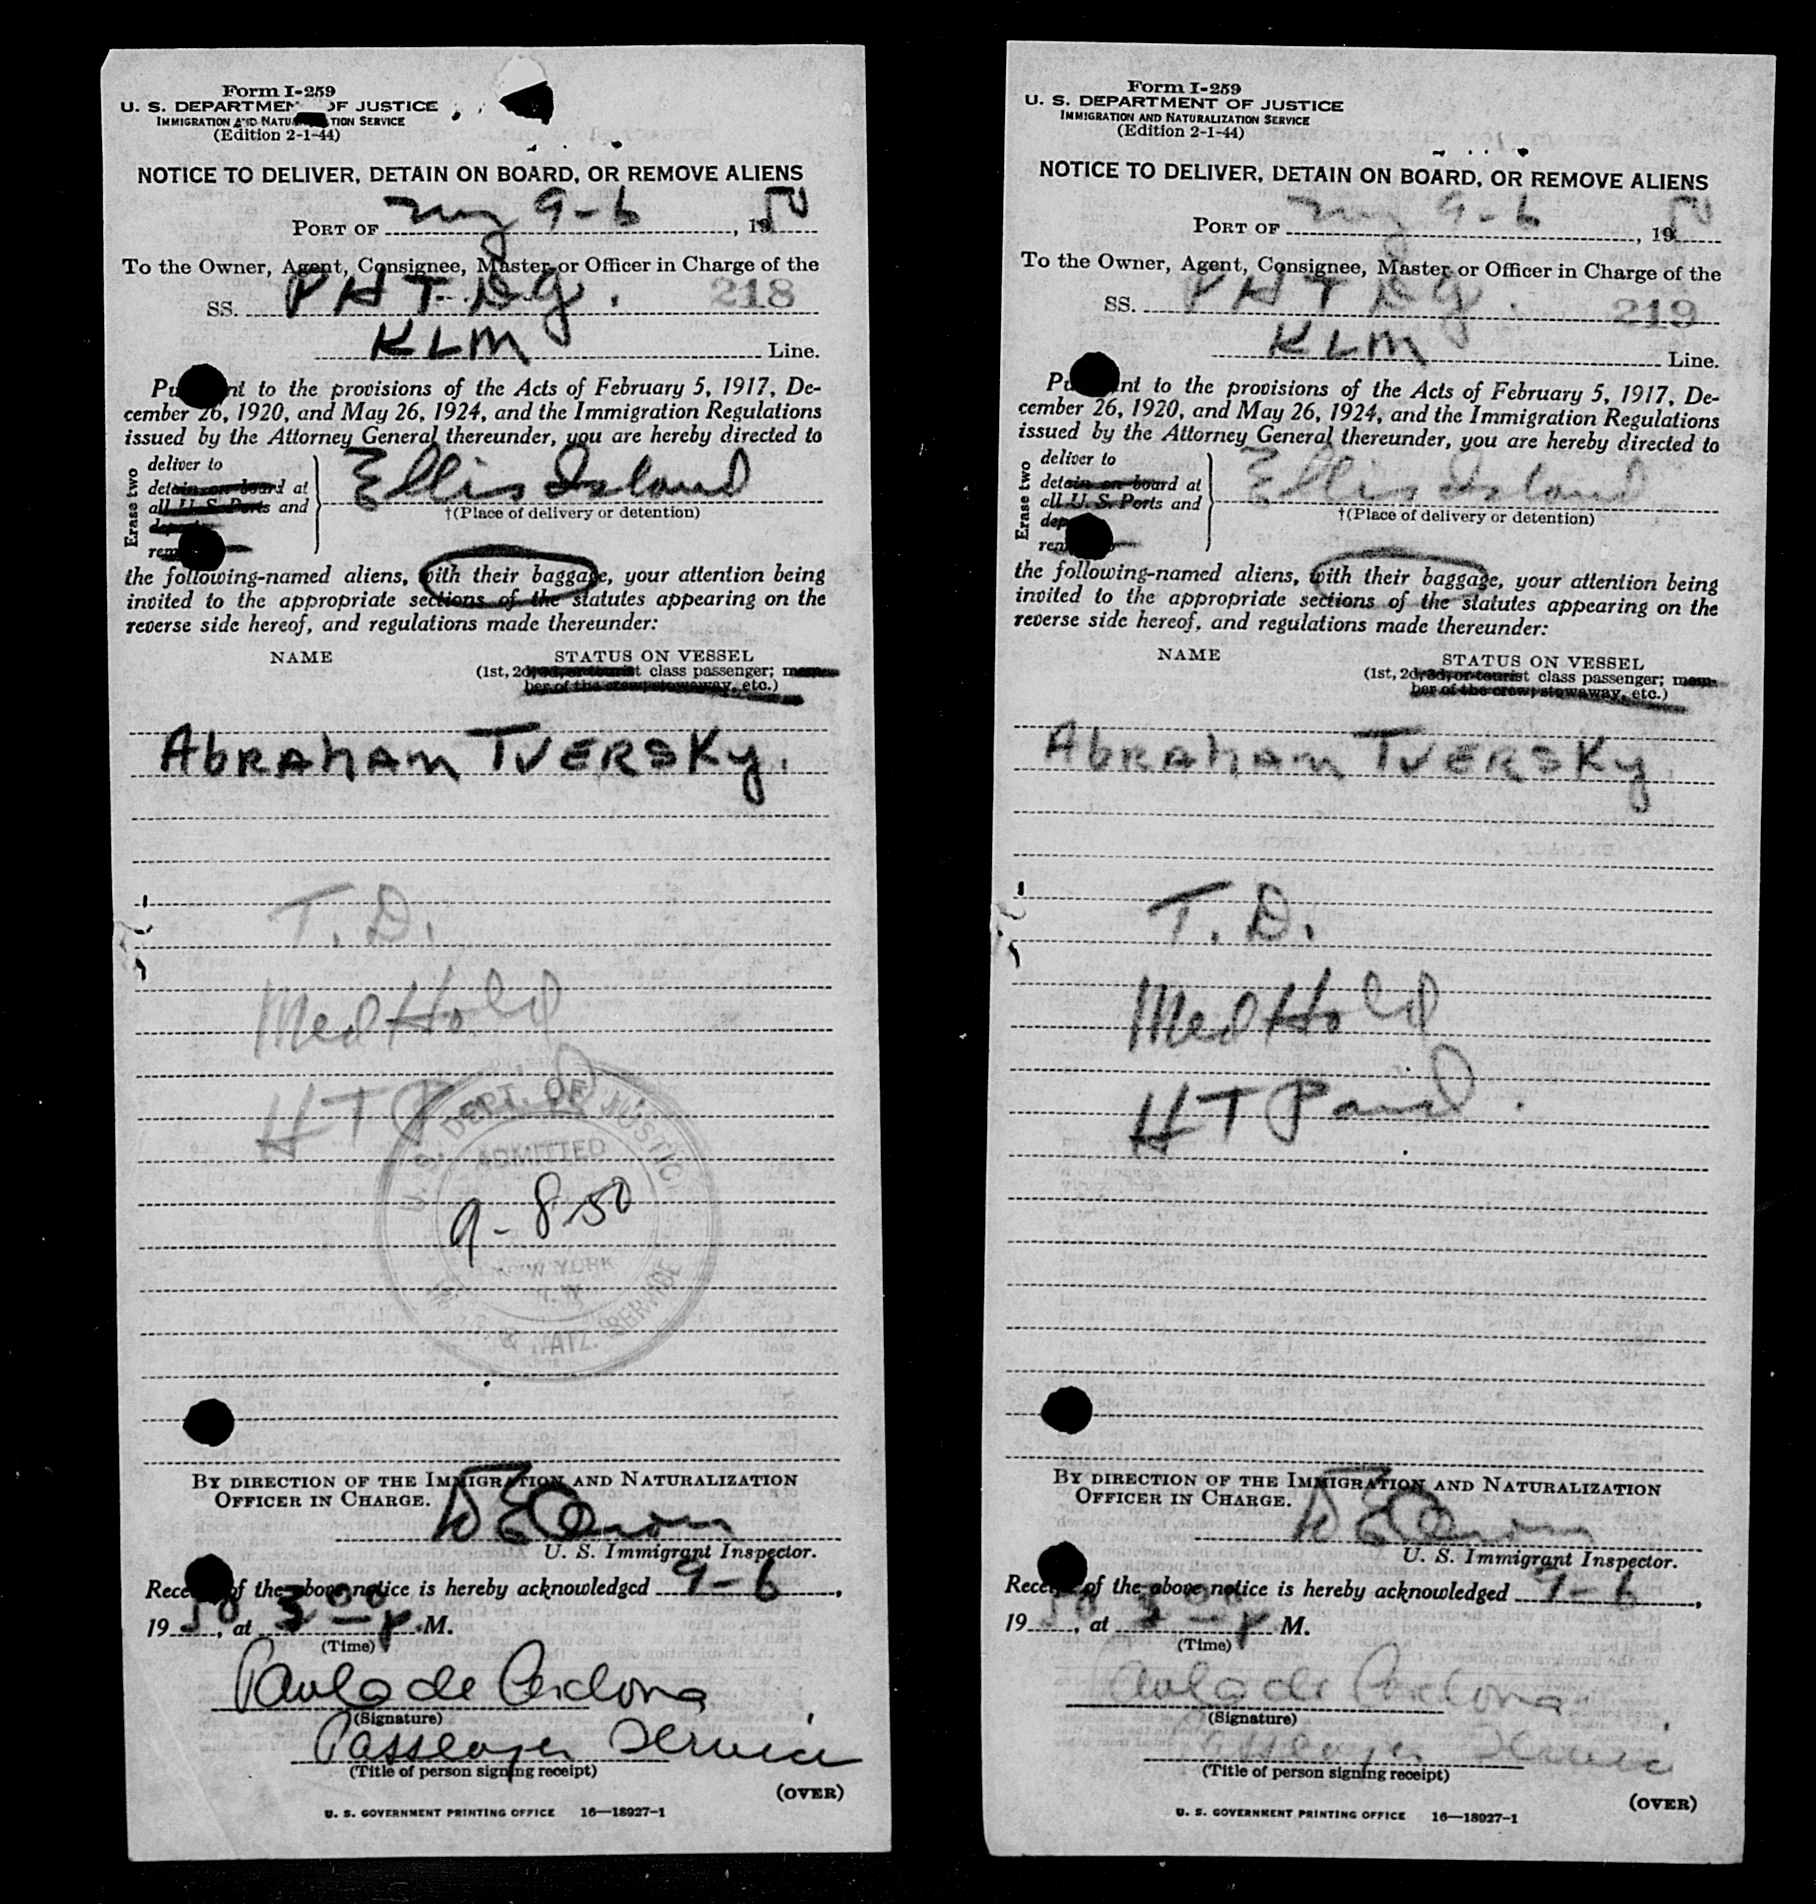 Form I-259
U. S. DEPARTMENT OF JUSTICE
IMMIGRATION AND NATURALIZATION SERVICE
(Edition 2-1-44)
NOTICE TO DELIVER, DETAIN ON BOARD, OR REMOVE ALIENS
PORT OF NY 9-6, 1950
To the Owner, Agent, Consignee, Master or Officer in Charge of the
SS. PH TDG. 218
KLM Line.
Pursuant to the provisions of the Acts of February 5, 1917, De-
cember 26, 1920, and May 26, 1924, and the Immigration Regulations
issued by the Attorney General thereunder, you are hereby directed to
Erase two
deliver to
detain on board at
all U. S. Ports and
deport
remove
Ellis Island
†(Place of delivery or detention)
the following-named aliens, with their baggage, your attention being
invited to the appropriate sections of the statutes appearing on the
reverse side hereof, and regulations made thereunder:
NAME STATUS ON VESSEL
(1st, 2d, 3d, or tourist class passenger; mem-
ber of the crew; stowaway, etc.)
ABRAHAM TVERSKY.
T. D.
Med Hold
HT P
U. S. DEPT. OF JUSTICE
ADMITTED
9-8-50
NEW YORK
N. Y.
& NATZ. SERVICE
BY DIRECTION OF THE IMMIGRATION AND NATURALIZATION
OFFICER IN CHARGE.
U. S. Immigrant Inspector.
Receipt of the above notice is hereby acknowledged 9-6,
1950, at 3 00 P.M.
(Time)
Paula de Cordova
(Signature)
Passenger Service
(Title of person signing receipt)
(OVER)
U. S. GOVERNMENT PRINTING OFFICE 16—18927-1
Form I-259
U. S. DEPARTMENT OF JUSTICE
IMMIGRATION AND NATURALIZATION SERVICE
(Edition 2-1-44)
NOTICE TO DELIVER, DETAIN ON BOARD, OR REMOVE ALIENS
PORT OF NY 9-6, 1950
To the Owner, Agent, Consignee, Master or Officer in Charge of the
SS. PH TDG. 219
KLM Line.
Pursuant to the provisions of the Acts of February 5, 1917, De-
cember 26, 1920, and May 26, 1924, and the Immigration Regulations
issued by the Attorney General thereunder, you are hereby directed to
Erase two
deliver to
detain on board at
all U. S. Ports and
deport
remove
Ellis Island
†(Place of delivery or detention)
the following-named aliens, with their baggage, your attention being
invited to the appropriate sections of the statutes appearing on the
reverse side hereof, and regulations made thereunder:
NAME STATUS ON VESSEL
(1st, 2d, 3d, or tourist class passenger; mem-
ber of the crew; stowaway, etc.)
ABRAHAM TVERSKY.
T. D.
Med Hold
HT Paid.
BY DIRECTION OF THE IMMIGRATION AND NATURALIZATION
OFFICER IN CHARGE.
U. S. Immigrant Inspector.
Receipt of the above notice is hereby acknowledged 9-6,
1950, at 3 00 P M.
(Time)
Paula de Cordova
(Signature)
Passenger Service
(Title of person signing receipt)
(OVER)
U. S. GOVERNMENT PRINTING OFFICE 16—18927-1